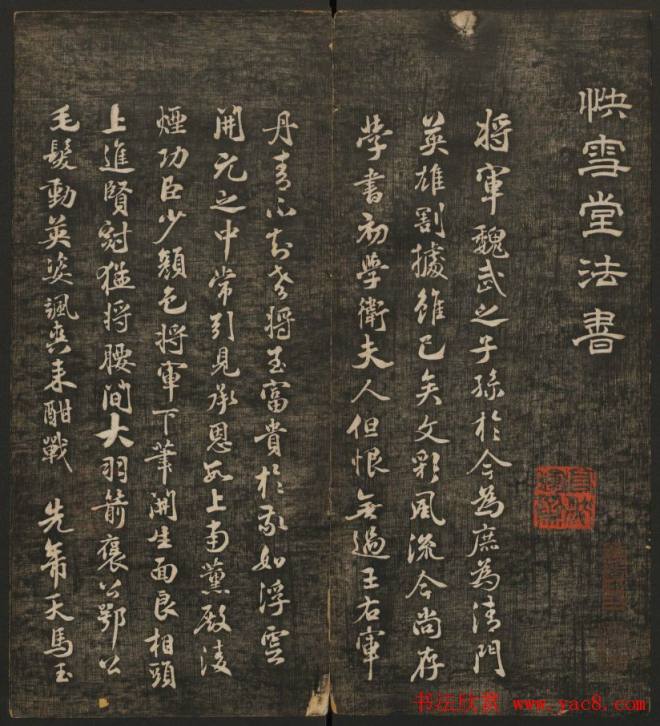 快雪堂法書
将軍魏武之子孫於今為庶為清門
英雄割據雖已矣文彩風流今尚存
学書初學衛夫人但恨無過王右軍
丹青不知老將至富貴於我如浮雲
開元之中常引見承恩數上南薰殿淩
煙功臣少顏色将軍下筆開生面良相頭
上進賢冠猛将腰間大羽箭褒公鄂公
毛髮動英姿颯爽来酣戰 先帝天馬玉
书法欣赏 www.yac8.com